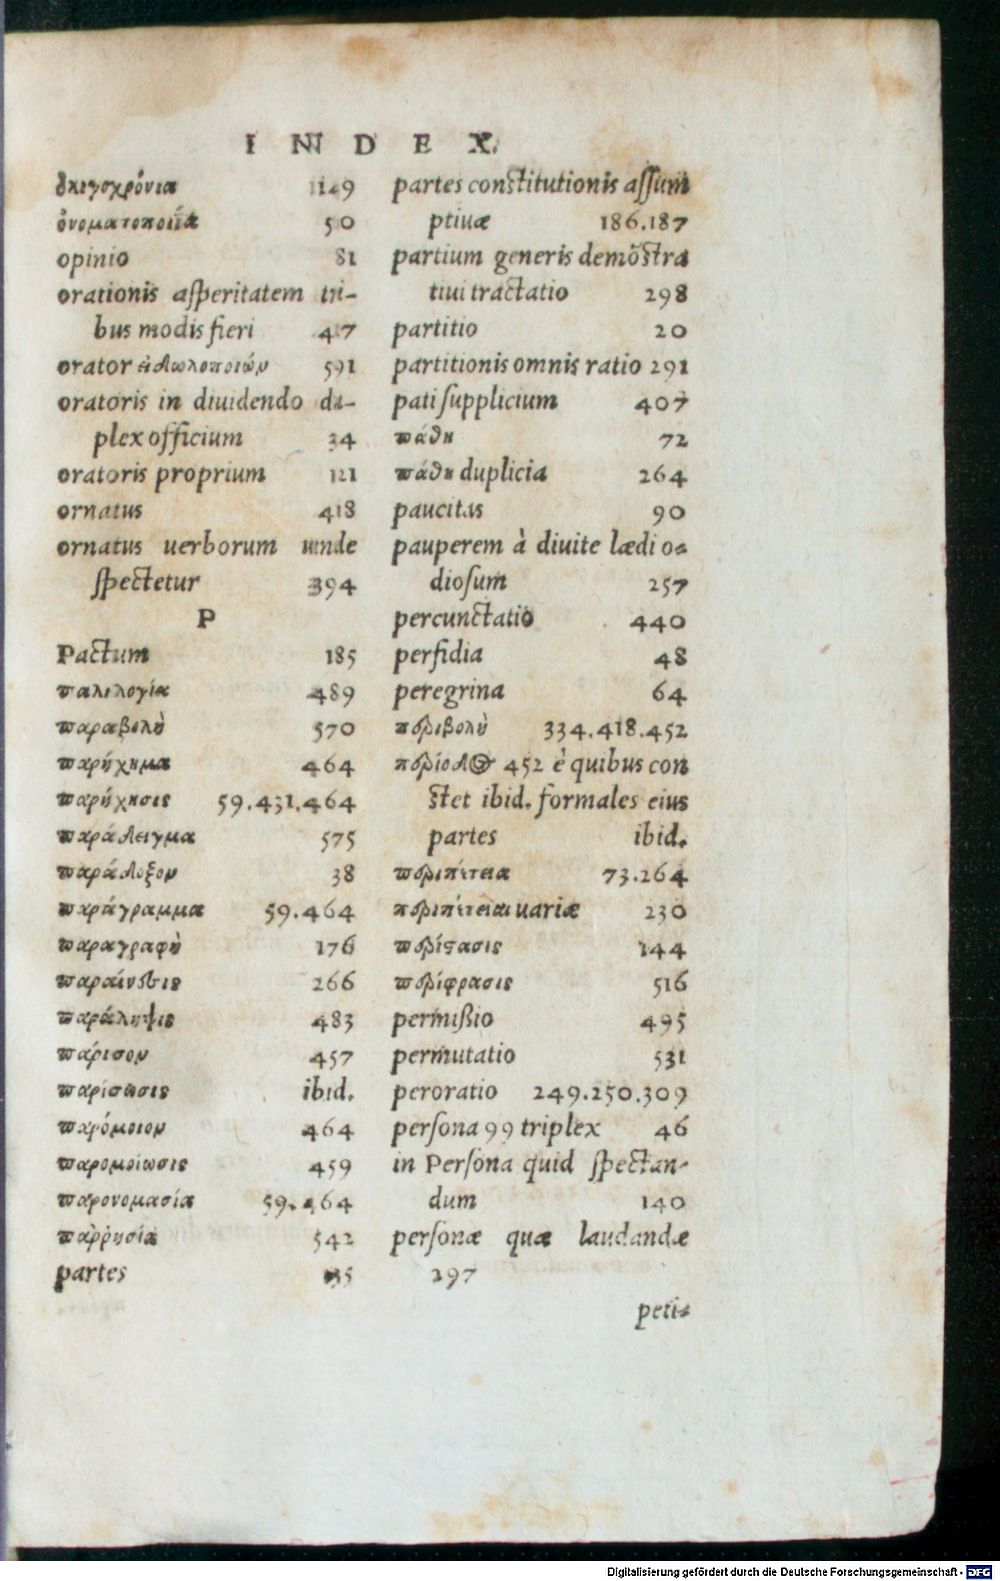 INDEX.
ὀλιγοχρόνια 149
ὀνοματοποιΐα 50
opinio 81
orationis asperitatem tri-
bus modis fieri 417
orator εἰδωλοποιῶν 591
oratoris in diuidendo du-
plex officium 34
oratoris proprium 121
ornatus 418
ornatus uerborum unde
spectetur 394
P
Pactum 185
παλιλογία 489
παραβολὴ 570
παρήχημα 464
παρήχησις 59.431.464
παράδειγμα 575
παράδοξον 38
παράγραμμα 59.464
παραγραφὴ 176
παραίνεσις 266
παράληψις 483
πάρισον 457
παρίσωσις ibid.
παρόμοιον 464
παρομοίωσις 459
παρονομασία 59.464
παῤῥησία 542
partes 35
partes constitutionis assum
ptiuæ 186.187
partium generis demõstra
tiui tractatio 298
partitio 20
partitionis omnis ratio 291
pati supplicium 407
πάθη 72
πάθη duplicia 264
paucitas 90
pauperem à diuite lædi o-
diosum 257
percunctatio 440
perfidia 48
peregrina 64
περιβολὴ 334.418.452
περίοδος 452 è quibus con
stet ibid. formales eius
partes ibid.
περιπέτεια 73.264
περιπέτειαι uariæ 230
περίστασις 144
περίφρασις 516
permißio 495
permutatio 531
peroratio 249.250.309
persona 99 triplex 46
in Persona quid spectan-
dum 140
personæ quæ laudandæ
297
peti-
Digitalisierung gefördert durch die Deutsche Forschungsgemeinschaft - DFG